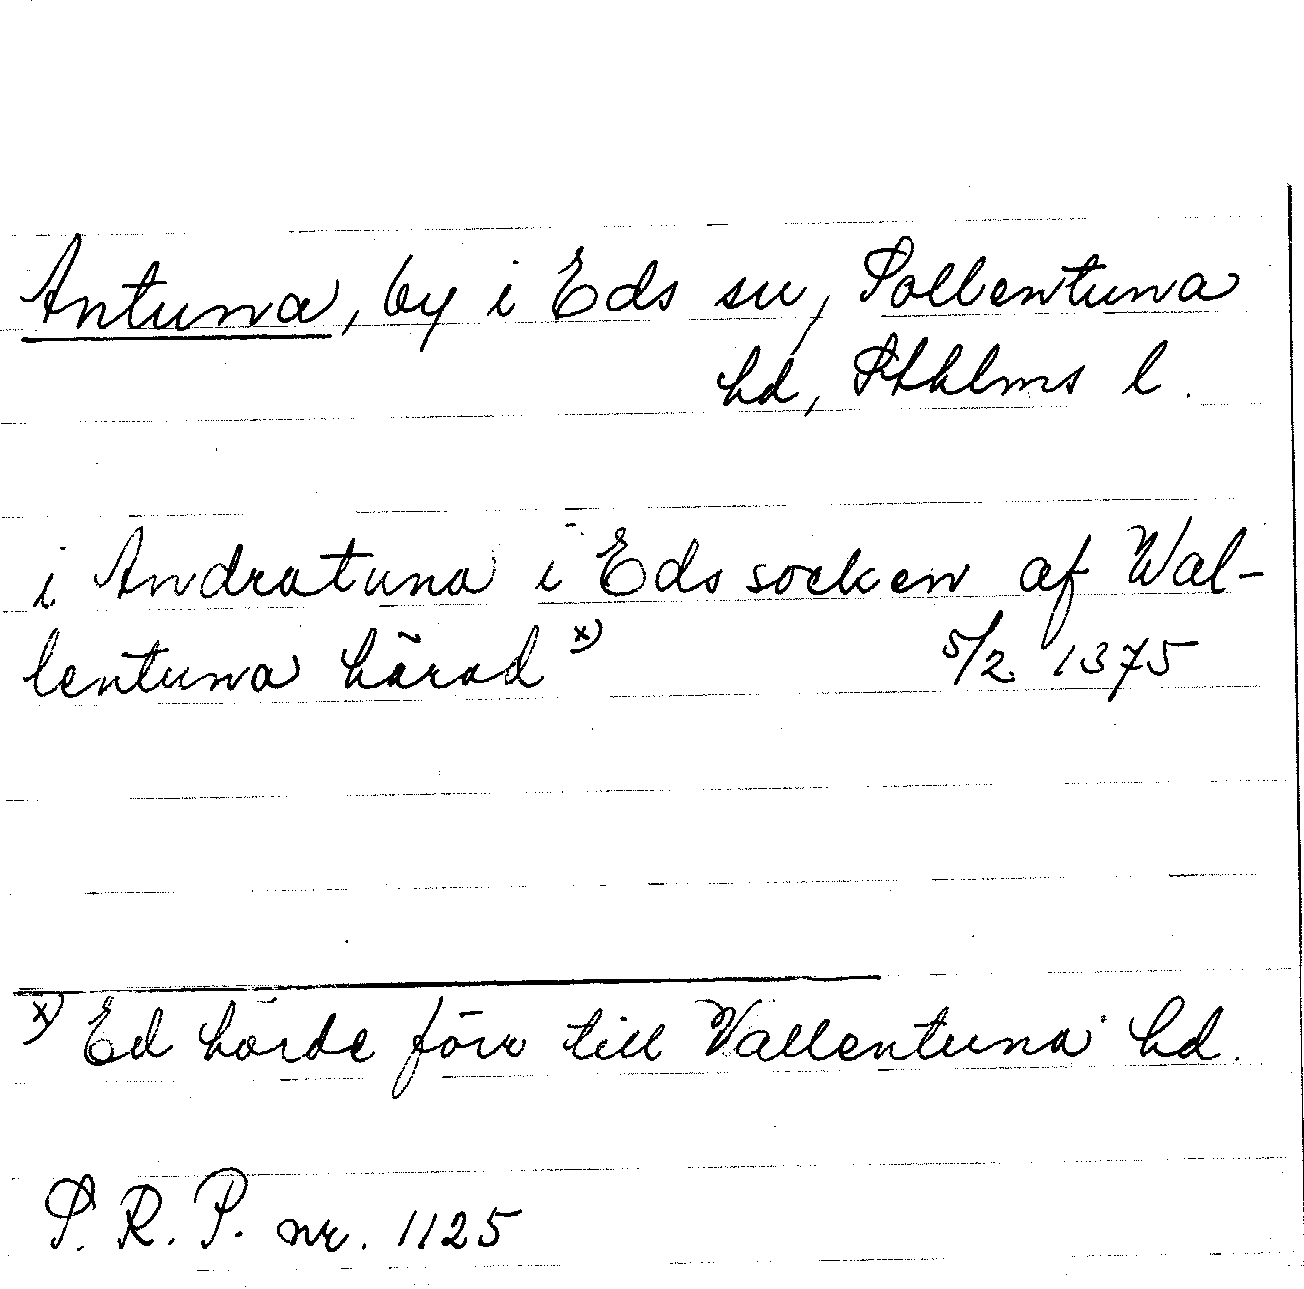 Antuna, by i Eds sn, Sollentuna
hd, Sthlms l.
i Andratuna i Eds socken af Wal-
lentuna härad x)
5/2 1375
x) Ed hörde förr till Vallentuna hd.
S. R. P. nr. 1125